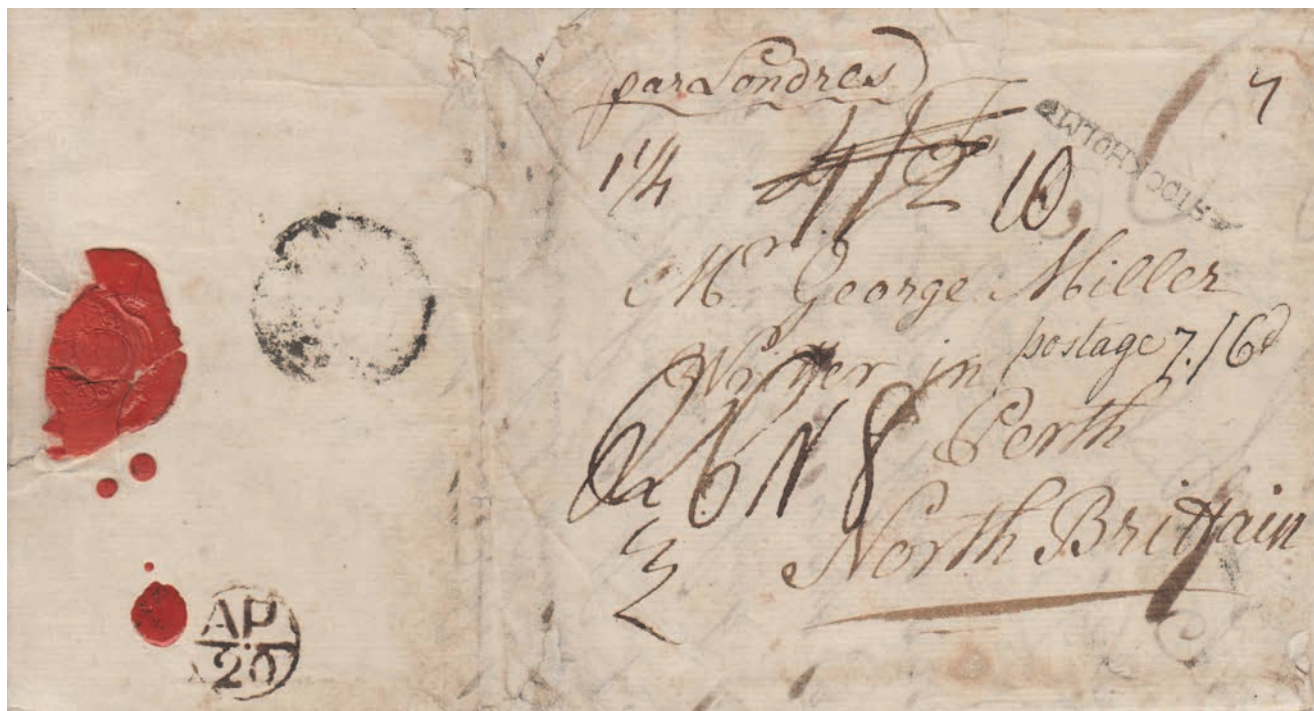 par Londres
7
STOCKHOLM
1 1/4
10
Mr George Miller
Writer in
postage 7./6d
Perth
North Brittain
AP
20